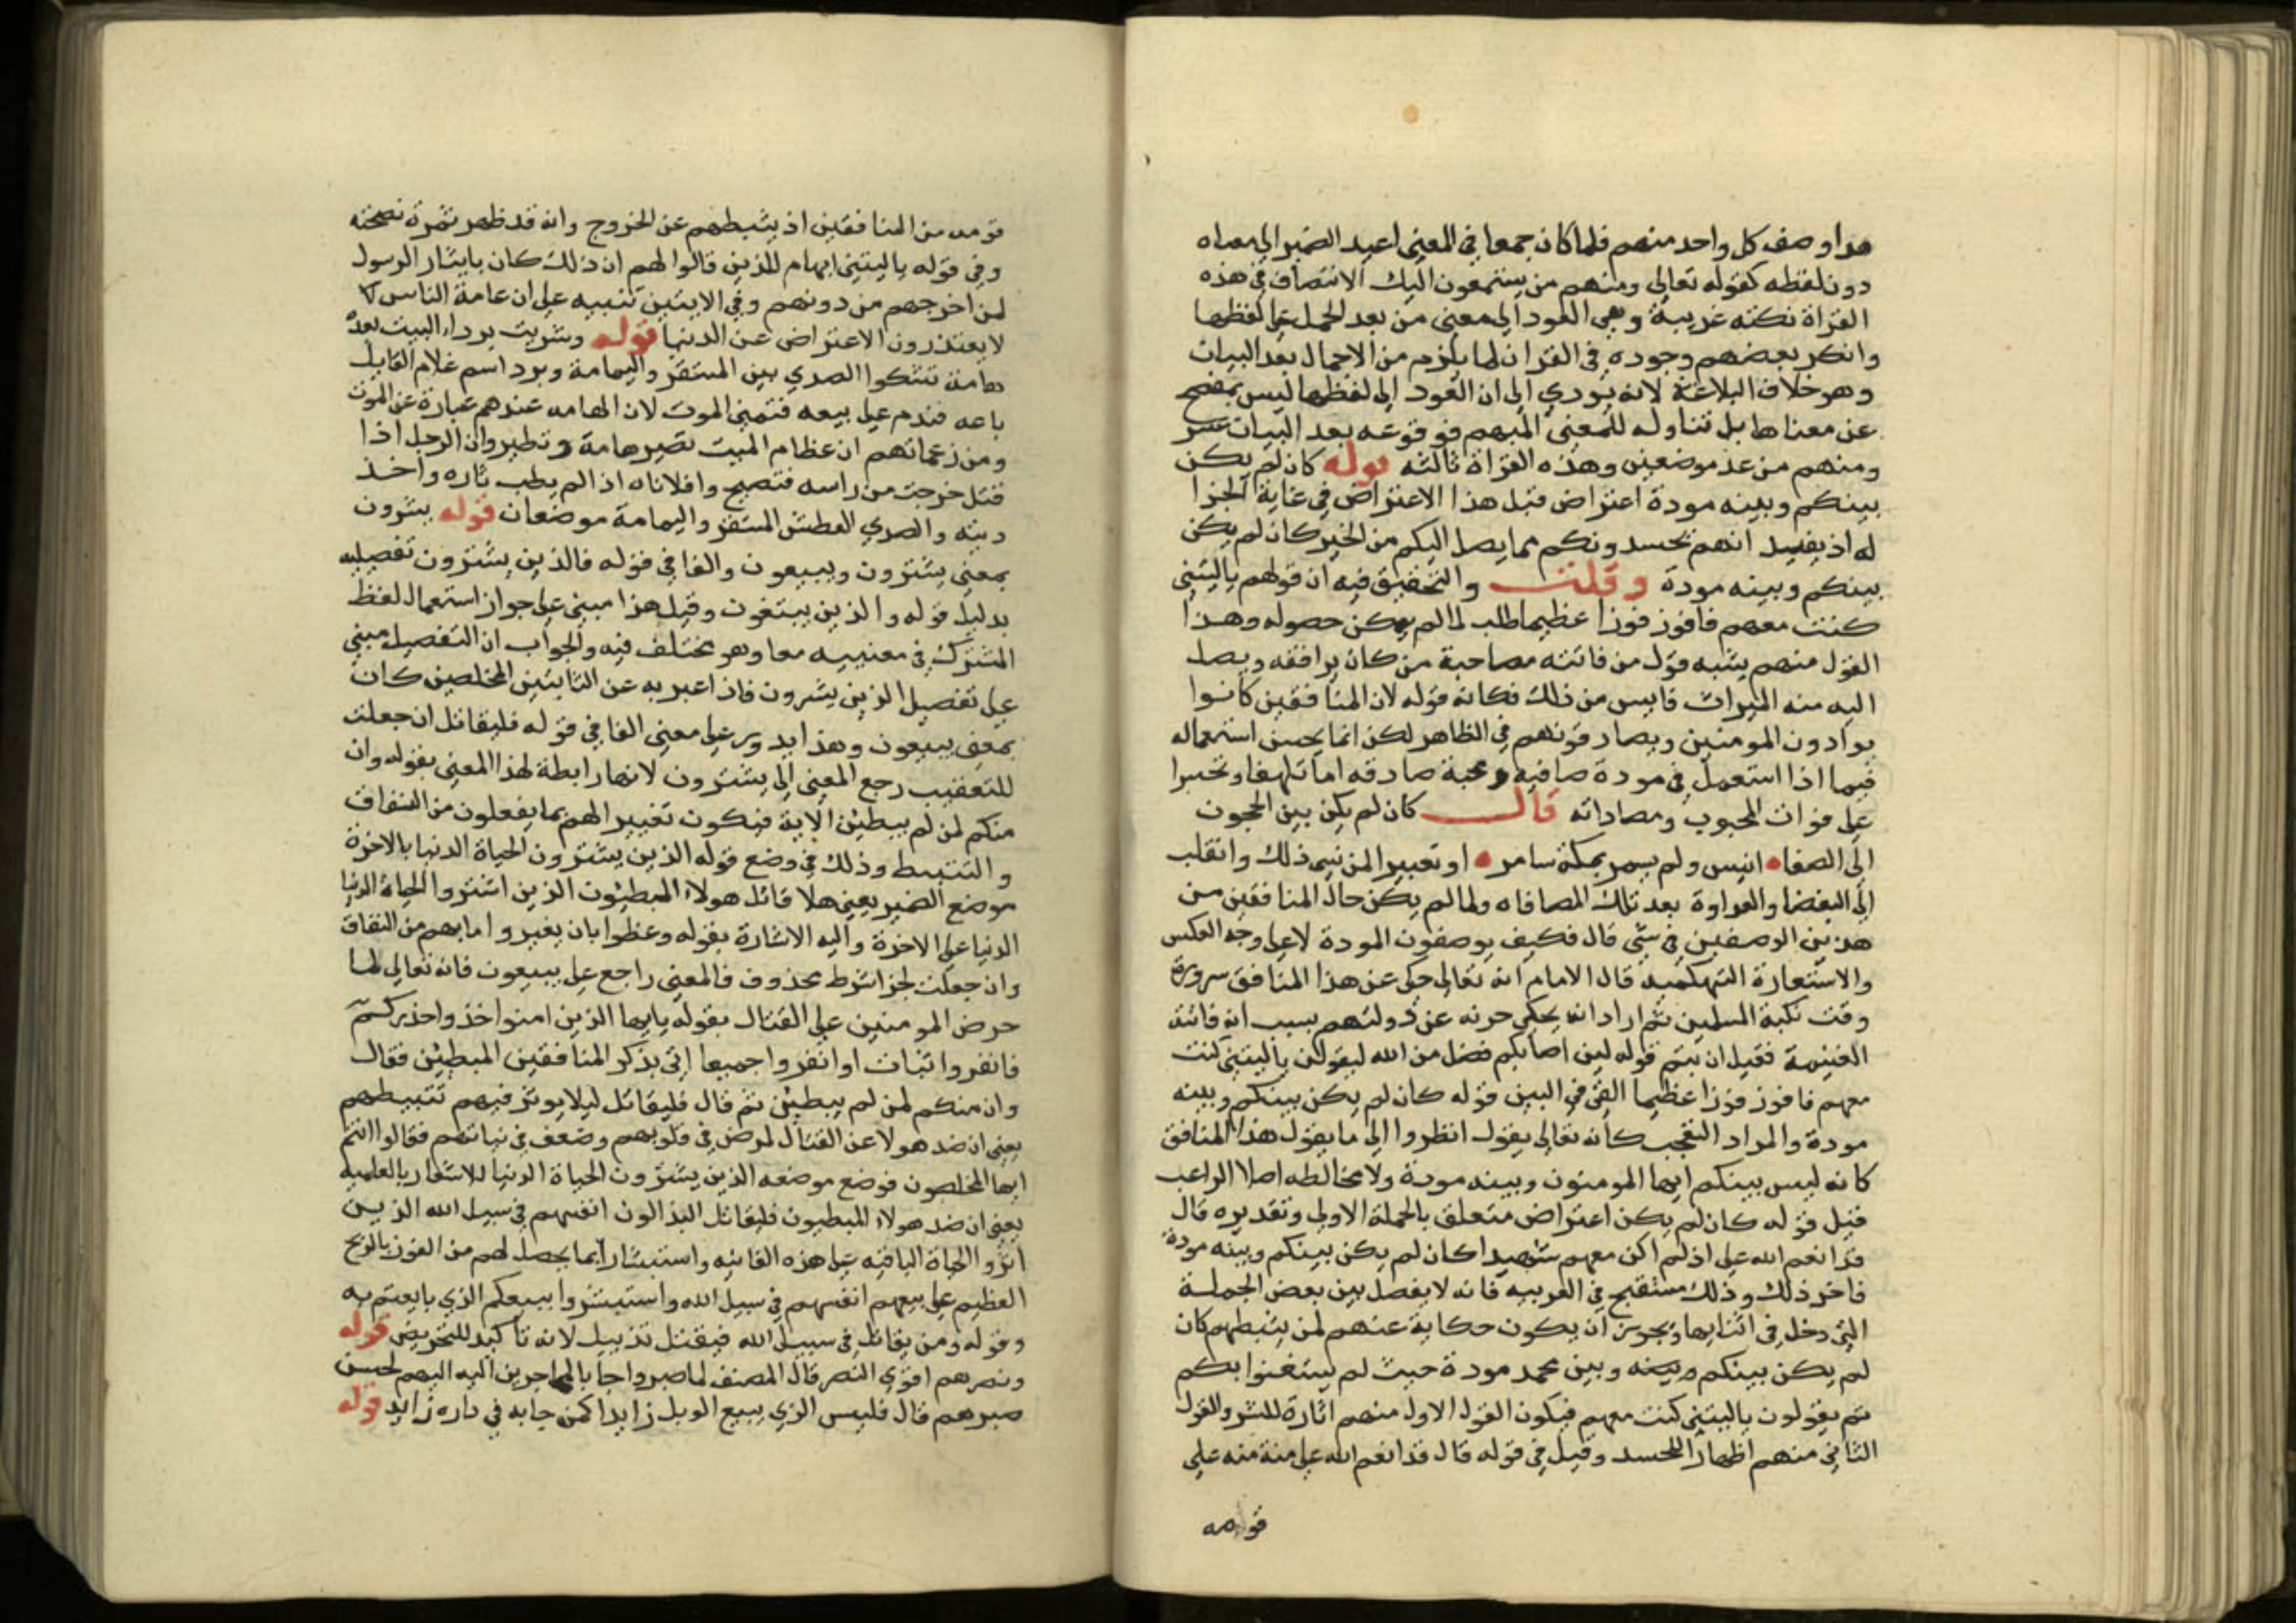 هذا وصف كل واحد منهم فلما كان جمعا في المعنى اعيد الضمير الى معناه
دون لفظه كقوله تعالى ومنهم من يستمعون اليك الانتصاف في هذه
القراة نكته غريبة وهي العود الى معنى من بعد الحمل على لفظها
وانكر بعضهم وجوده في القران لما يلزم من الاجمال بعد البيان
وهو خلاف البلاغة لانه يودي الى ان العود الى لفظها ليس بمفصح
عن معناها بل تناوله للمعنى المبهم فوقوعه بعد البيان عسر
ومنهم من عد موضعين وهذه القراة ثالثه قوله كان لم يكن
بينكم وبينه مودة اعتراض قبل هذا الاعتراض في غاية الجزا
له اذ يفيد انهم يحسدونكم مما يصل اليكم من الخير كان لم يكن
بينكم وبينه مودة وقلت والتحقيق فيه ان قولهم ياليتني
كنت معهم فافوز فوزا عظيما طلب لما لم يمكن حصوله وهذا
القول منهم يشبه قول من فاتته مصاحبة من كان يرافقه ويصل
اليه منه الميراث فايس من ذلك فكانه قوله لان المنافقين كانوا
يوادون المومنين ويصادقونهم في الظاهر لكن انما يحسن استعماله
فيما اذا استعمل في مودة صافيه ومحبة صادقه اما تلهفا وتحسرا
على فوات المحبوب ومصاداته قال كان لم يكن بين الحجون
الى الصفا انيس ولم يسمر بمكة سامر او تعييرا لمن نسي ذلك وانقلب
الى البغضا والعداوة بعد تلك المصافاه ولما لم يكن حال المنافقين من
هذين الوصفين في شي قال فكيف يوصفون المودة لا على وجه العكس
والاستعارة التهكميه قال الامام انه تعالى حكى عن هذا المنافق سروره
وقت نكبة المسلمين ثم اراد ان يحكي حزنه عن دولتهم بسبب انه فاتته
الغنيمة فقبل ان يتم قوله لين اصابكم فضل من الله ليقولن ياليتني كنت
معهم فافوز فوزا عظيما القى في البين قوله كان لم يكن بينكم وبينه
مودة والمراد التعجب كانه تعالى يقول انظروا الى ما يقول هذا المنافق
كانه ليس بينكم ايها المومنون وبينه مودة ولا مخالطه اصلا الراغب
قيل قوله كان لم يكن اعتراض متعلق بالجملة الاولى وتقديره قال
قد انعم الله علي اذ لم اكن معهم شهيدا كان لم يكن بينكم وبينه مودة
فاخر ذلك وذلك مستقبح في العربيه فانه لا يفصل بين بعض الجملة
التي دخل في اثنايها ويجوز ان يكون حكاية عنهم لمن يثبطهم كان
لم يكن بينكم وبينه وبين محمد مودة حيث لم يستغنوا بكم
ثم يقولون ياليتني كنت معهم فيكون القول الاول منهم اثارة للشر والقول
الثاني منهم اظهارا للحسد وقيل في قوله قال قد انعم الله علي منة منه على
قومه
قومه من المنافقين اذ يثبطهم عن الخروج وانه قد ظهر ثمرة نصحته
وفي قوله ياليتني ايهام للذين قالوا لهم ان ذلك كان بايثار الرسول
لمن اخرجهم من دونهم وفي الايتين تنبيه على ان عامة الناس لا
لا يعتذرون الاعتراض عن الدنيا قوله وشريت بردا البيت بعده
هامة تشكوا الصدي بين المشقر واليمامة وبرد اسم غلام القايل
باعه فندم على بيعه فتمنى الموت لان الهامه عندهم عبارة عن الموت
ومن زعماتهم ان عظام الميت تصير هامة وتطير وان الرجل اذا
قتل خرجت من راسه فتصيح وافلاناه اذا لم يطب ثاره واخذ
ديته والصدي العطش المشقر واليمامة موضعان قوله يشرون
بمعنى يشترون ويبيعون والفا في قوله فالذين يشترون تفصيليه
بدليل قوله والذين يبيتغون وقيل هذا مبني على جواز استعمال لفظ
المشترك في معنييه معا وهو مختلف فيه والجواب ان التفصيل مبني
على تفصيل الذين يشرون فاذا عبر به عن الثابتين المخلصين كان
بمعنى يبيعون وهذا يدور على معنى الفا في قوله فليقاتل ان جعلت
للتعقيب رجع المعنى الى يشترون لانها رابطة لهذا المعنى بقوله وان
منكم لمن لم يبطئن الاية فيكون تغييرا لهم بما يفعلون من النفاق
والتثبيط وذلك في وضع قوله الذين يشترون الحياة الدنيا بالاخرة
موضع الضمير يعني هلا قاتل هولاء المبطئون الذين اشتروا الحياة الدنيا
الدنيا على الاخرة واليه الاشارة بقوله وعظوا بان يغيروا ما بهم من النفاق
وان جعلت لجزا شرط محذوف فالمعنى راجع على يبيعون فانه تعالى لما
حرض المومنين على القتال بقوله يايها الذين امنوا خذوا حذركم
فانفروا ثبات او انفروا جميعا اتى بذكر المنافقين المبطئين فقال
وان منكم لمن لم يبطئن ثم قال فليقاتل ليلا يوثر فيهم تثبيطهم
يعني ان ضد هولا عن القتال لمرض في قلوبهم وضعف في نياتهم فقالوا انتم
ايها المخلصون فوضع موضعه الذين يشترون الحياة الدنيا للاشعار بالعلميه
يعني ان ضد هولاء المبطيون فليقاتل البذالون انفسهم في سبيل الله الذين
اثروا الحياة الباقيه على هذه الفانيه واستبشارا بما يحصل لهم من الفوز بالربح
العظيم على بيعهم انفسهم في سبيل الله واستبشروا ببيعكم الذي بايعتم به
وقوله ومن يقاتل في سبيل الله فيقتل تذييل لانه تاكيد للتحريض قوله
ونصرهم اقوى النصر قال المصنف لما صبروا جا بالمهاجرين اليه اليهم لحسن
صبرهم قال فليس الذي يبيع الوبل زايدا كمن جابه في داره زايد قوله